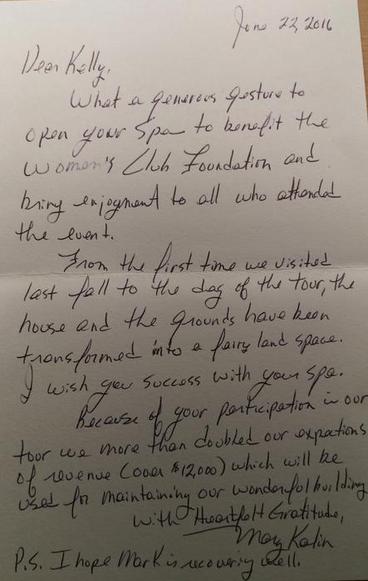 June 22, 2016
Dear Kelly,
What a generous gesture to
open your Spa to benefit the
Women's Club Foundation and
bring enjoyment to all who attended
the event.
From the first time we visited
last fall to the day of the tour, the
house and the grounds have been
transformed into a fairy land space.
I wish you success with your spa.
Because of your participation in our
tour we more than doubled our expections
of revenue (over $12,000) which will be
used for maintaining our wonderful building
With Heartfelt Gratitude,
Mary Kalin
P.S. I hope Mark is recovering well.